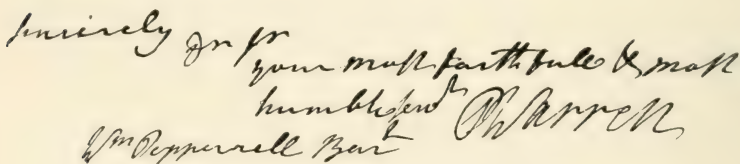 sincerely Dr Sr
your most faithfull & most
humble servt PWarren
Wm Pepperrell Bart